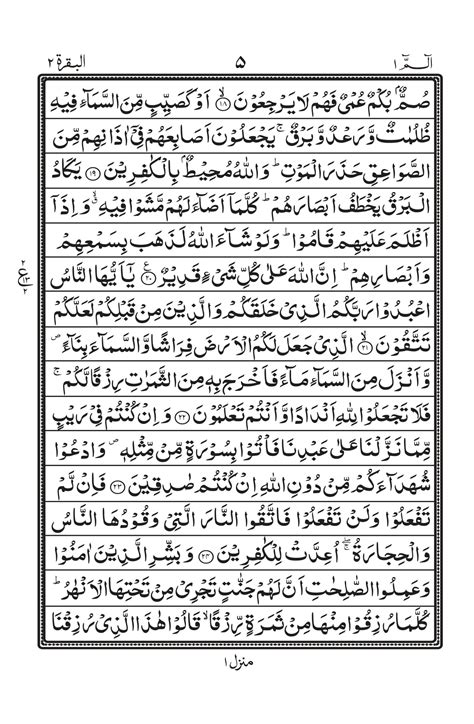 الٓمّٓ ١ ٥ البقرة ٢
صُمٌّۢ بُكْمٌ عُمْیٌ فَهُمْ لَا یَرْجِعُوْنَ ۙ﴿۱۸﴾ اَوْ كَصَیِّبٍ مِّنَ السَّمَآءِ فِیْهِ
ظُلُمٰتٌ وَّ رَعْدٌ وَّ بَرْقٌ ۚ یَجْعَلُوْنَ اَصَابِعَهُمْ فِیْۤ اٰذَانِهِمْ مِّنَ
الصَّوَاعِقِ حَذَرَ الْمَوْتِ ؕ وَ اللّٰهُ مُحِیْطٌۢ بِالْكٰفِرِیْنَ ﴿۱۹﴾ یَكَادُ
الْبَرْقُ یَخْطَفُ اَبْصَارَهُمْ ؕ كُلَّمَاۤ اَضَآءَ لَهُمْ مَّشَوْا فِیْهِ ۙۗ وَ اِذَاۤ
اَظْلَمَ عَلَیْهِمْ قَامُوْا ؕ وَ لَوْ شَآءَ اللّٰهُ لَذَهَبَ بِسَمْعِهِمْ
وَ اَبْصَارِهِمْ ؕ اِنَّ اللّٰهَ عَلٰی كُلِّ شَیْءٍ قَدِیْرٌ ﴿۲۰﴾ یٰۤاَیُّهَا النَّاسُ
ع
اعْبُدُوْا رَبَّكُمُ الَّذِیْ خَلَقَكُمْ وَ الَّذِیْنَ مِنْ قَبْلِكُمْ لَعَلَّكُمْ
تَتَّقُوْنَ ۙ﴿۲۱﴾ الَّذِیْ جَعَلَ لَكُمُ الْاَرْضَ فِرَاشًا وَّ السَّمَآءَ بِنَآءً ۪
وَّ اَنْزَلَ مِنَ السَّمَآءِ مَآءً فَاَخْرَجَ بِهٖ مِنَ الثَّمَرٰتِ رِزْقًا لَّكُمْ ۚ
فَلَا تَجْعَلُوْا لِلّٰهِ اَنْدَادًا وَّ اَنْتُمْ تَعْلَمُوْنَ ﴿۲۲﴾ وَ اِنْ كُنْتُمْ فِیْ رَیْبٍ
مِّمَّا نَزَّلْنَا عَلٰی عَبْدِنَا فَاْتُوْا بِسُوْرَةٍ مِّنْ مِّثْلِهٖ ۪ وَ ادْعُوْا
شُهَدَآءَكُمْ مِّنْ دُوْنِ اللّٰهِ اِنْ كُنْتُمْ صٰدِقِیْنَ ﴿۲۳﴾ فَاِنْ لَّمْ
تَفْعَلُوْا وَ لَنْ تَفْعَلُوْا فَاتَّقُوا النَّارَ الَّتِیْ وَ قُوْدُهَا النَّاسُ
وَ الْحِجَارَةُ ۖۚ اُعِدَّتْ لِلْكٰفِرِیْنَ ﴿۲۴﴾ وَ بَشِّرِ الَّذِیْنَ اٰمَنُوْا
وَ عَمِلُوا الصّٰلِحٰتِ اَنَّ لَهُمْ جَنّٰتٍ تَجْرِیْ مِنْ تَحْتِهَا الْاَنْهٰرُ ؕ
كُلَّمَا رُزِقُوْا مِنْهَا مِنْ ثَمَرَةٍ رِّزْقًا ۙ قَالُوْا هٰذَا الَّذِیْ رُزِقْنَا
منزل ۱